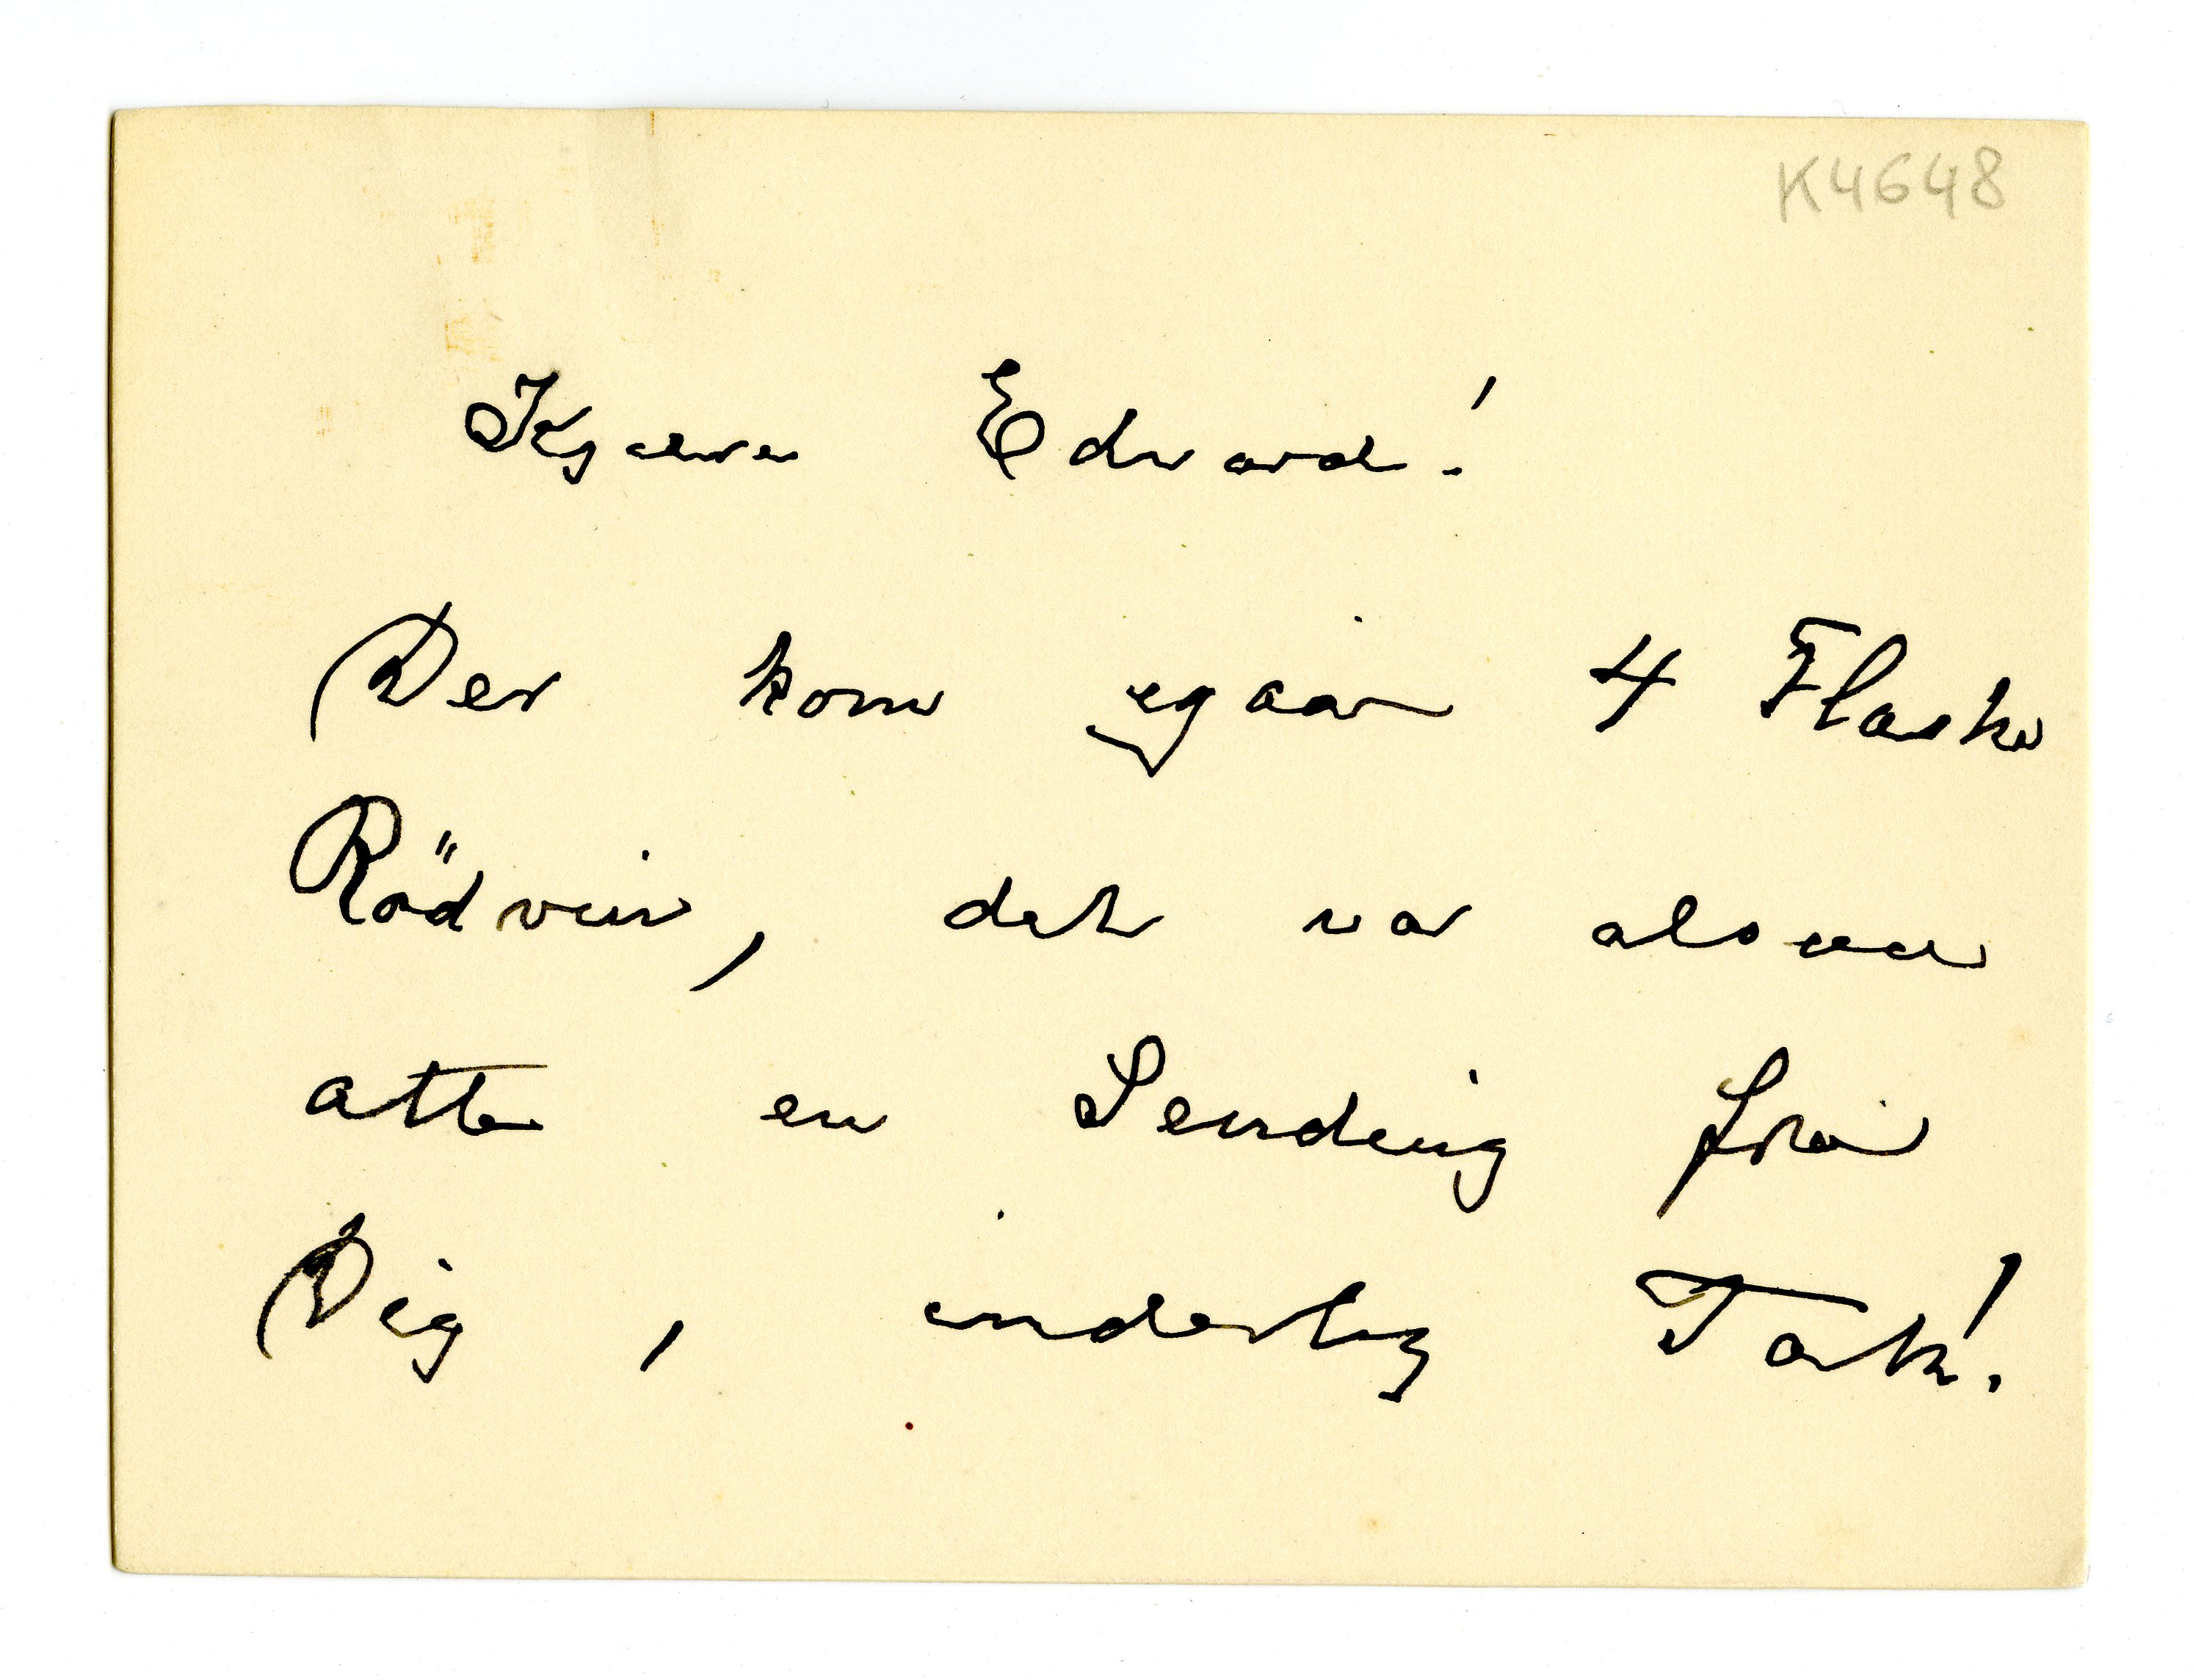 K4648
Kjære Edvard!
Der kom igaar 4 Flasker
Rödvin, det var alsaa
atter en Sending fra
Dig, inderlig Tak!